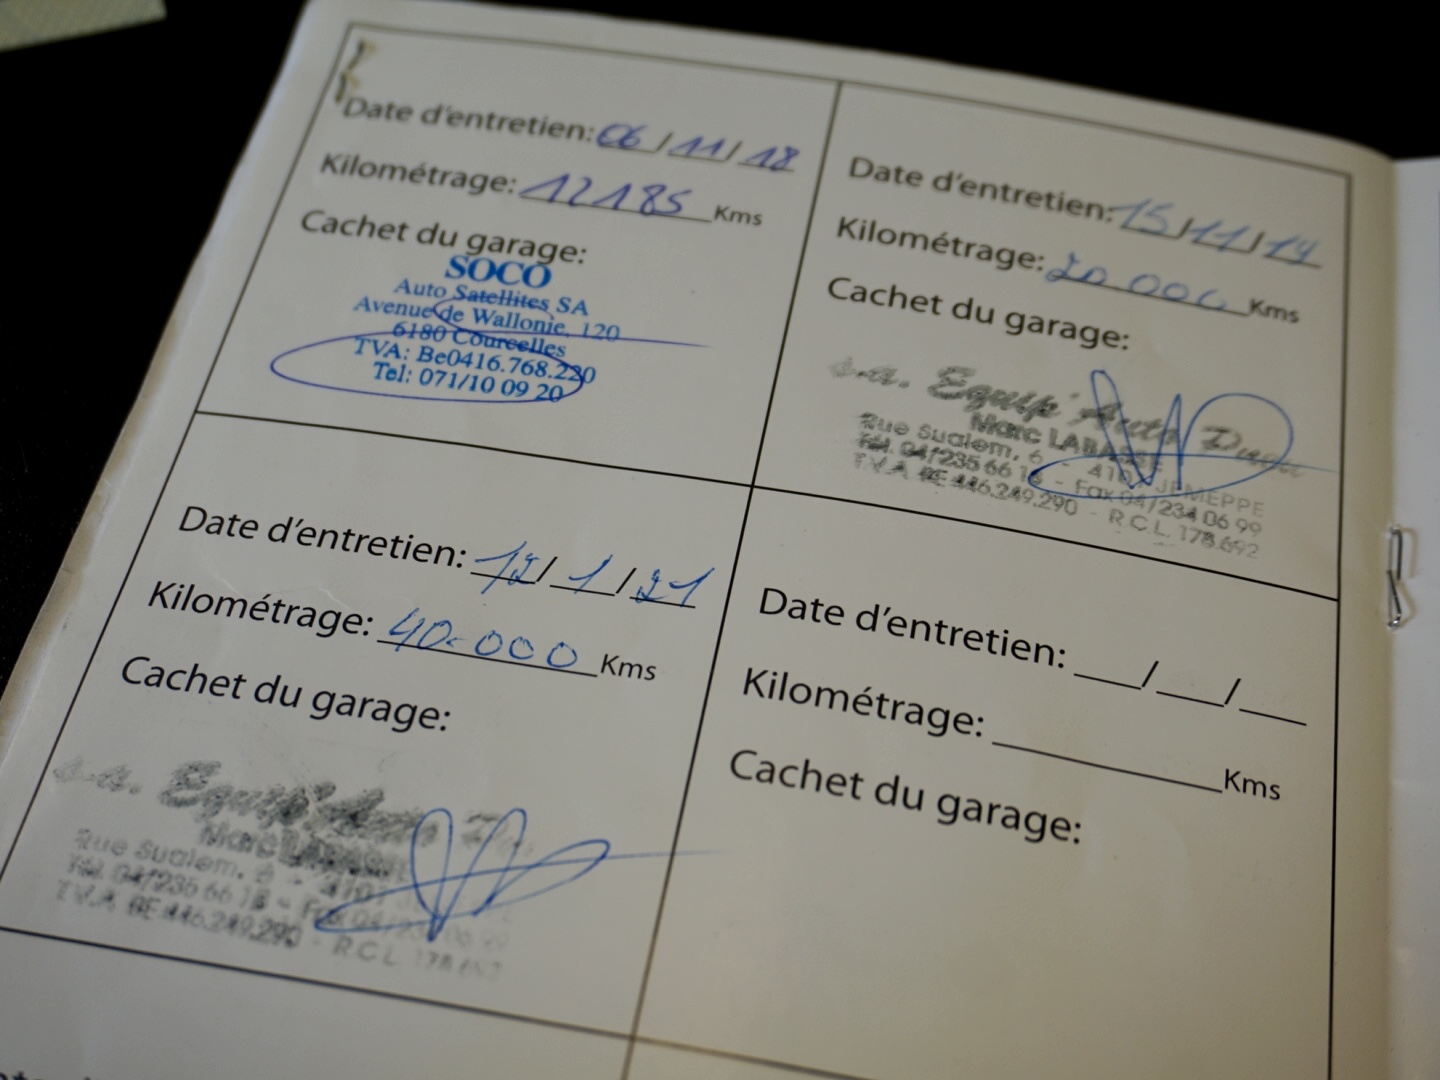 Date d'entretien: 06/11/18
Kilométrage: 12185 Kms
Cachet du garage:
SOCO
Auto Satellites SA
Avenue de Wallonie, 120
6180 Courcelles
TVA: Be0416.768.220
Tel: 071/10 09 20
Date d'entretien: 15/11/19
Kilométrage: 20 000 Kms
Cachet du garage:
s.a. Equip'Auto
Marc LABASSE
Rue Sualem, 6 - 4101 JEMEPPE
Tél. 04/235 66 18 - Fax 04/234 06 99
T.V.A. BE 446.249.290 - R.C.L. 178.692
Date d'entretien: 12/1/21
Kilométrage: 40.000 Kms
Cachet du garage:
s.a. Equip'Auto
Marc LABASSE
Rue Sualem, 6 - 4101
Tél. 04/235 66 18 - Fax 04/234 06 99
T.V.A. BE 446.249.290 - R.C.L. 178.692
Date d'entretien: __/__/__
Kilométrage: ______ Kms
Cachet du garage: